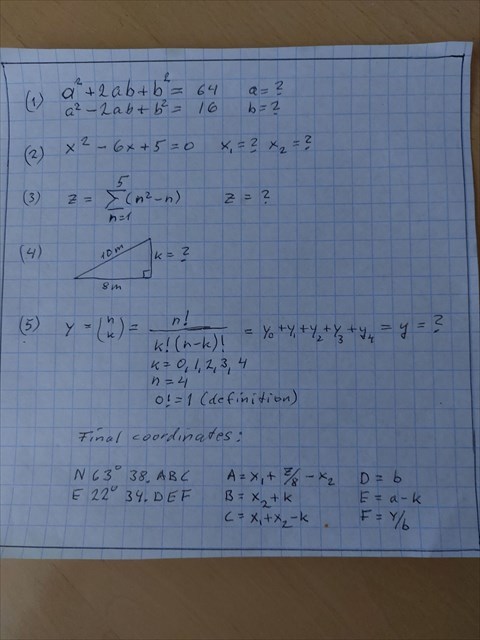 (1) a²+2ab+b² = 64 a = ?
a²-2ab+b² = 16 b = ?
(2) x² - 6x + 5 = 0 x₁ = ? x₂ = ?
(3) z = 5∑n=1 (n²-n) z = ?
(4) 10m k = ?
8m
(5) y = (n k) = n! / k!(n-k)! = y₀+y₁+y₂+y₃+y₄ = y = ?
k = 0, 1, 2, 3, 4
n = 4
0! = 1 (definition)
Final coordinates:
N 63° 38. ABC A = x₁ + z/8 - x₂ D = b
E 22° 34. DEF B = x₂ + k E = a - k
C = x₁+x₂-k F = Y/b